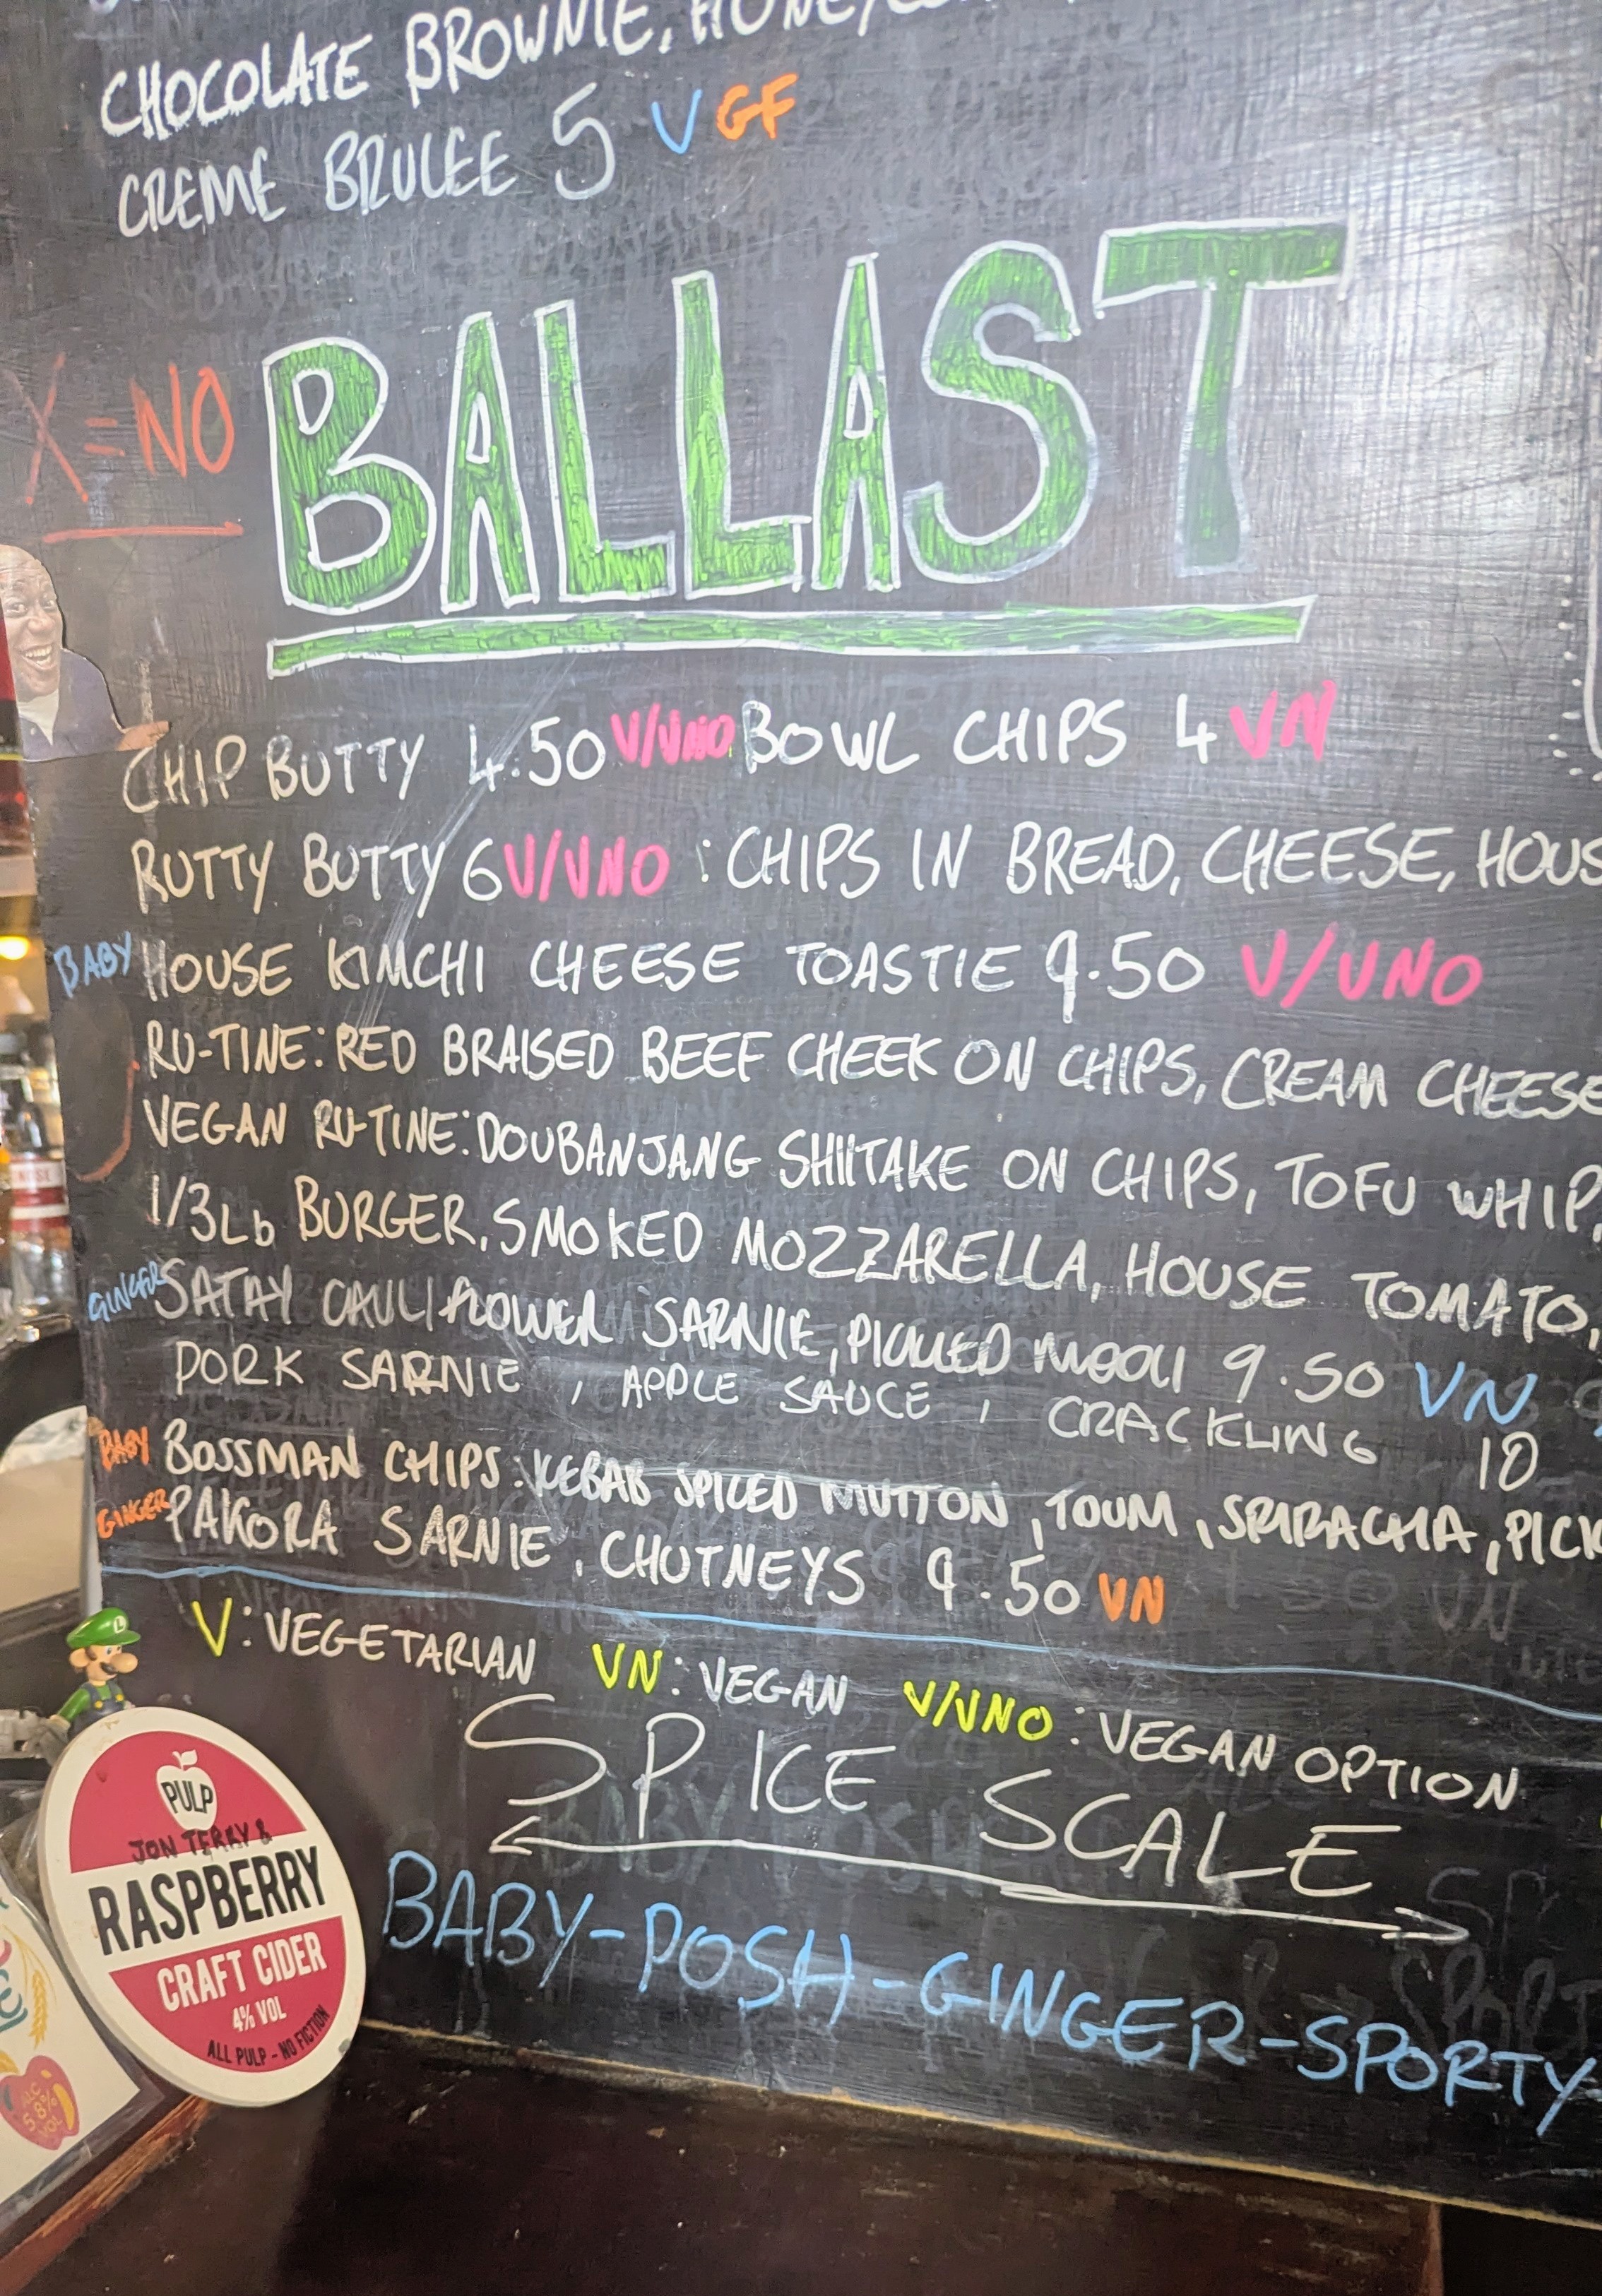 CHOCOLATE BROWNIE, HONEYCO
CREME BRULEE 5 V GF
X=NO
BALLAST
CHIP BUTTY 4.50 V/VNO BOWL CHIPS 4 VN
RUTTY BUTTY 6 V/VNO : CHIPS IN BREAD, CHEESE, HOUS
BABY HOUSE KIMCHI CHEESE TOASTIE 9.50 V/VNO
RU-TINE: RED BRAISED BEEF CHEEK ON CHIPS, CREAM CHEESE
VEGAN RU-TINE: DOUBANJANG SHIITAKE ON CHIPS, TOFU WHIP,
1/3Lb BURGER, SMOKED MOZZARELLA, HOUSE TOMATO,
GINGER SATAY CAULIFLOWER SARNIE, PICKLED MOOLI 9.50 VN
PORK SARNIE , APPLE SAUCE , CRACKLING 10
BABY BOSSMAN CHIPS: KEBAB SPICED MUTTON , TOUM , SRIRACHA , PICK
GINGER PAKORA SARNIE , CHUTNEYS 9.50 VN
V: VEGETARIAN VN: VEGAN V/VNO: VEGAN OPTION
SPICE SCALE
BABY-POSH-GINGER-SPORTY-
PULP
JON TERRY &
RASPBERRY
CRAFT CIDER
4% VOL
ALL PULP - NO FICTION
ALC
5.8%
VOL